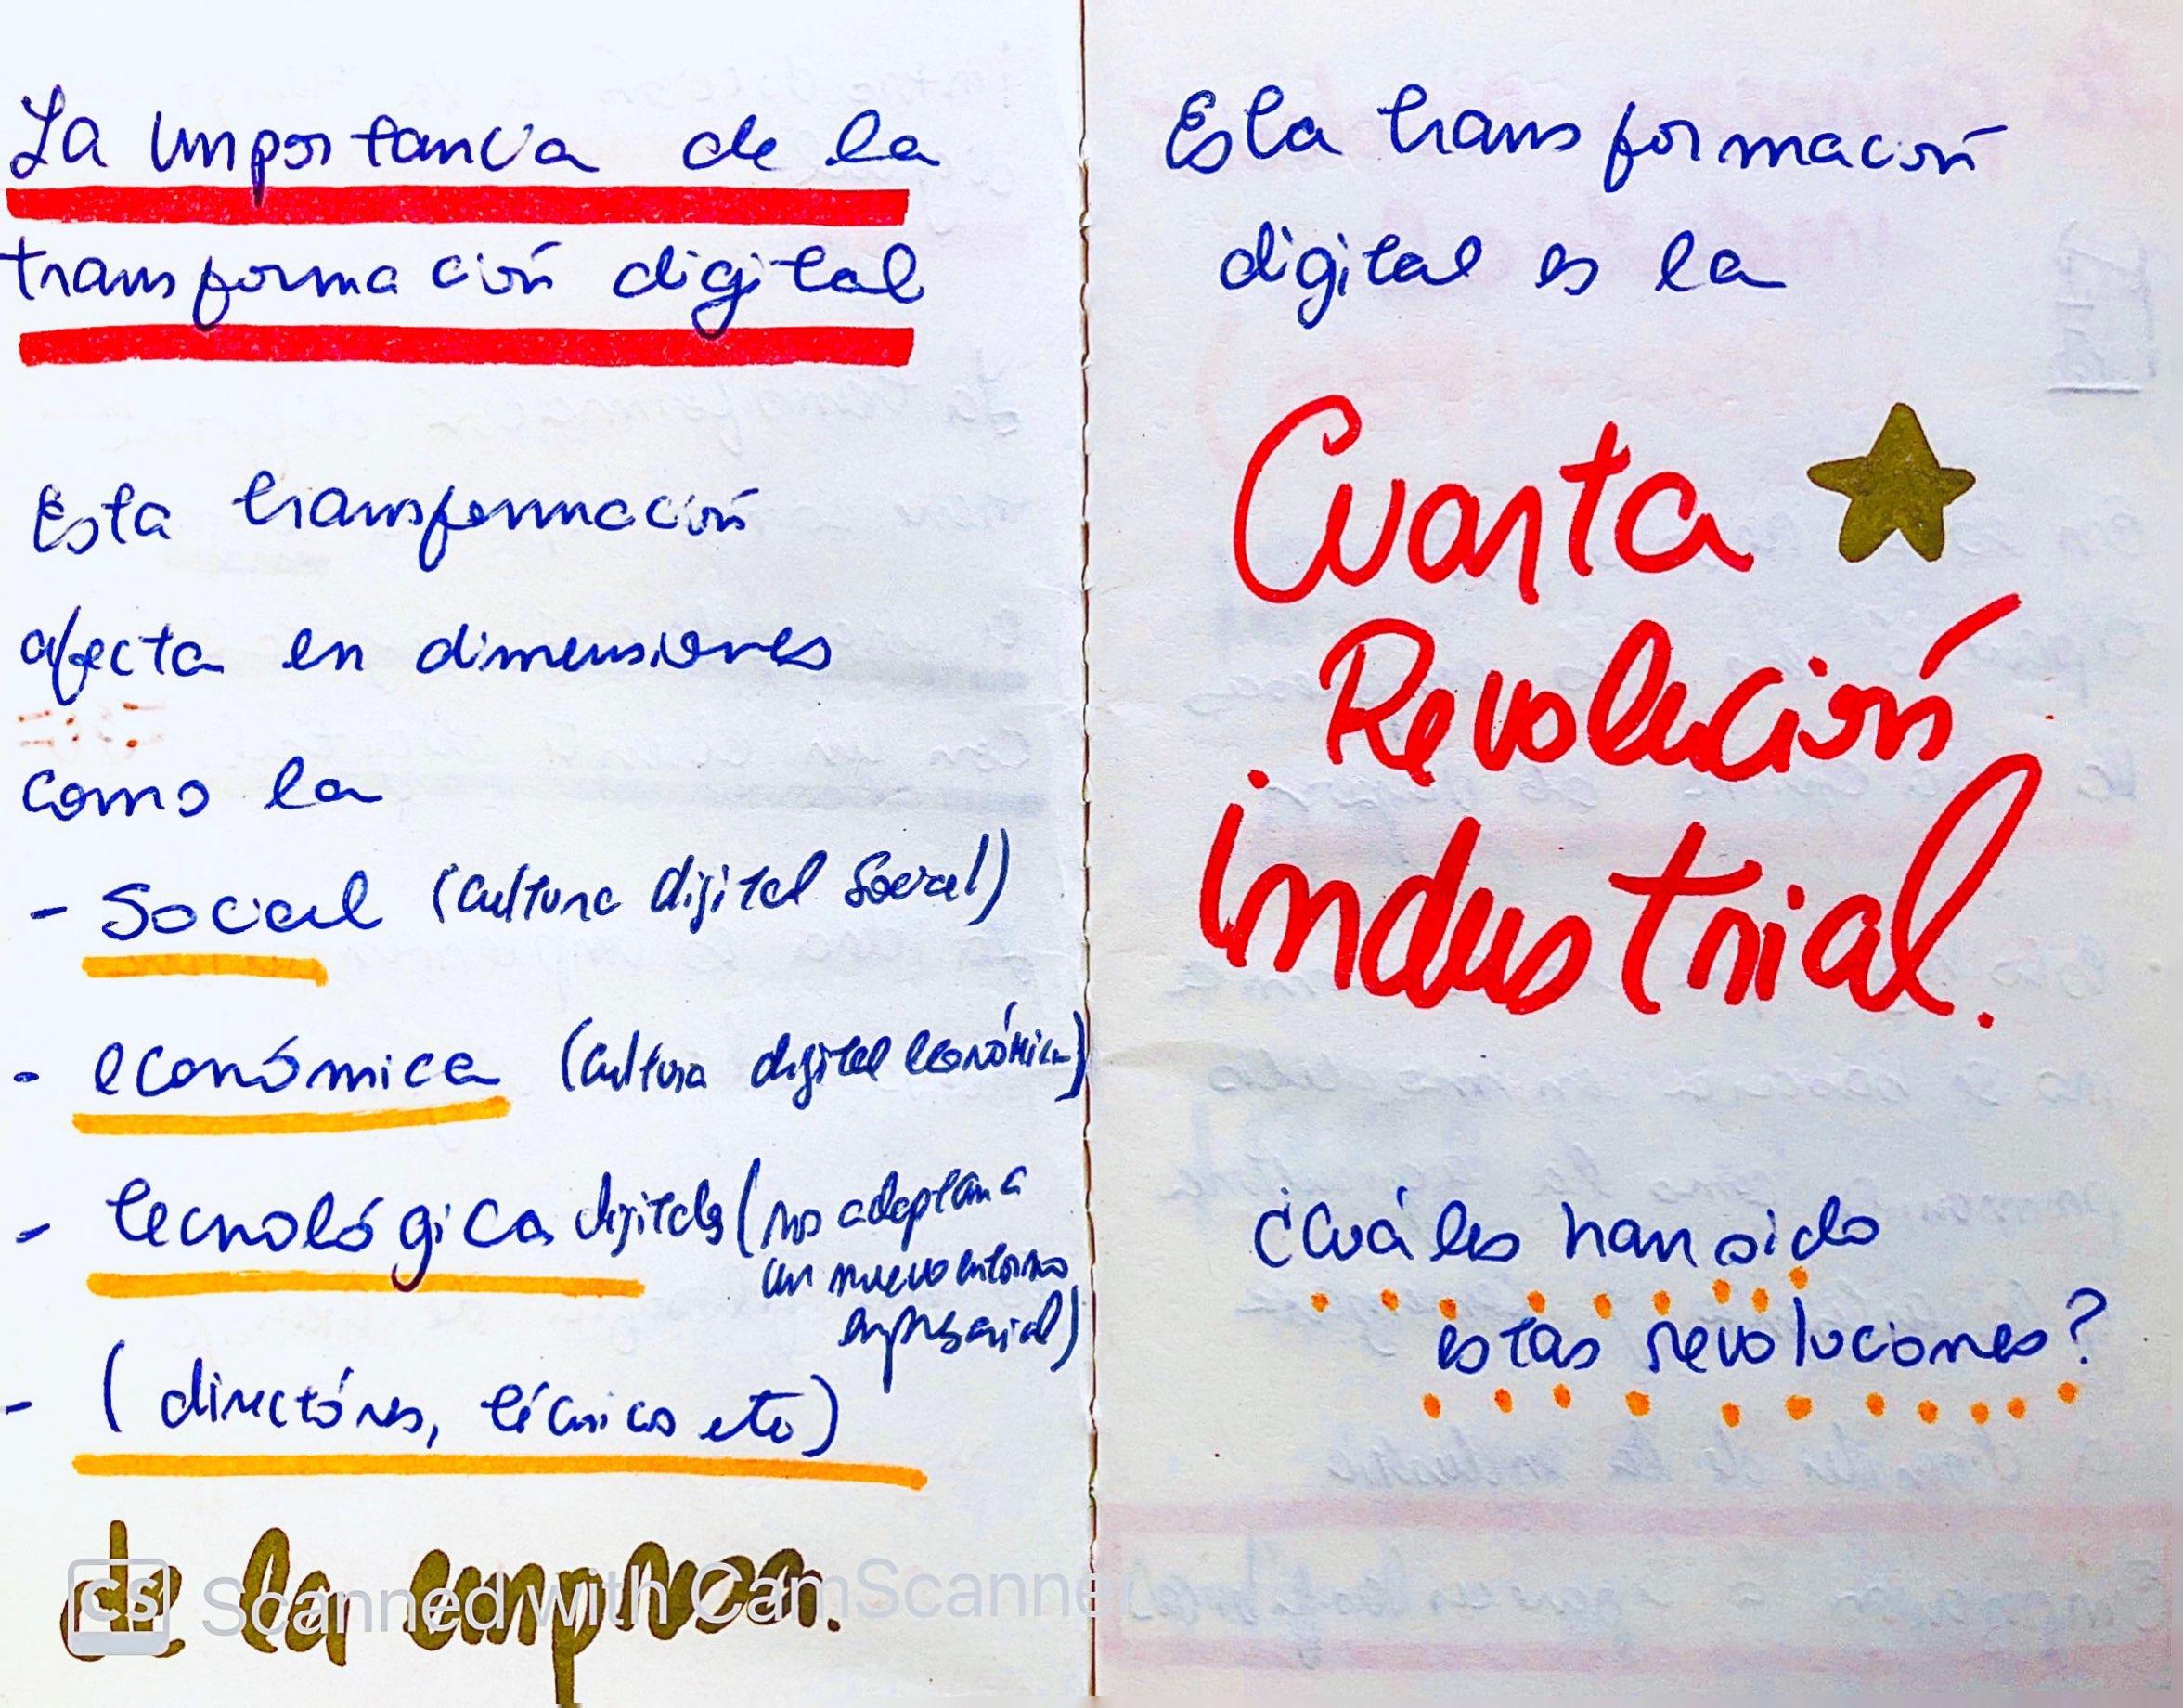 La importancia de la
transformación digital
Esta transformación
afecta en dimensiones
como la
- Social (Cultura digital Social)
- económica (Cultura digital económica)
- tecnológica digitales (nos adaptan a
un nuevo entorno
empresarial)
- (directóres, técnicos etc)
de la empresa.
CS Scanned with CamScanne
Esta transformación
digital es la
Cuarta
Revolución
industrial.
¿Cuáles han sido
estas revoluciones?